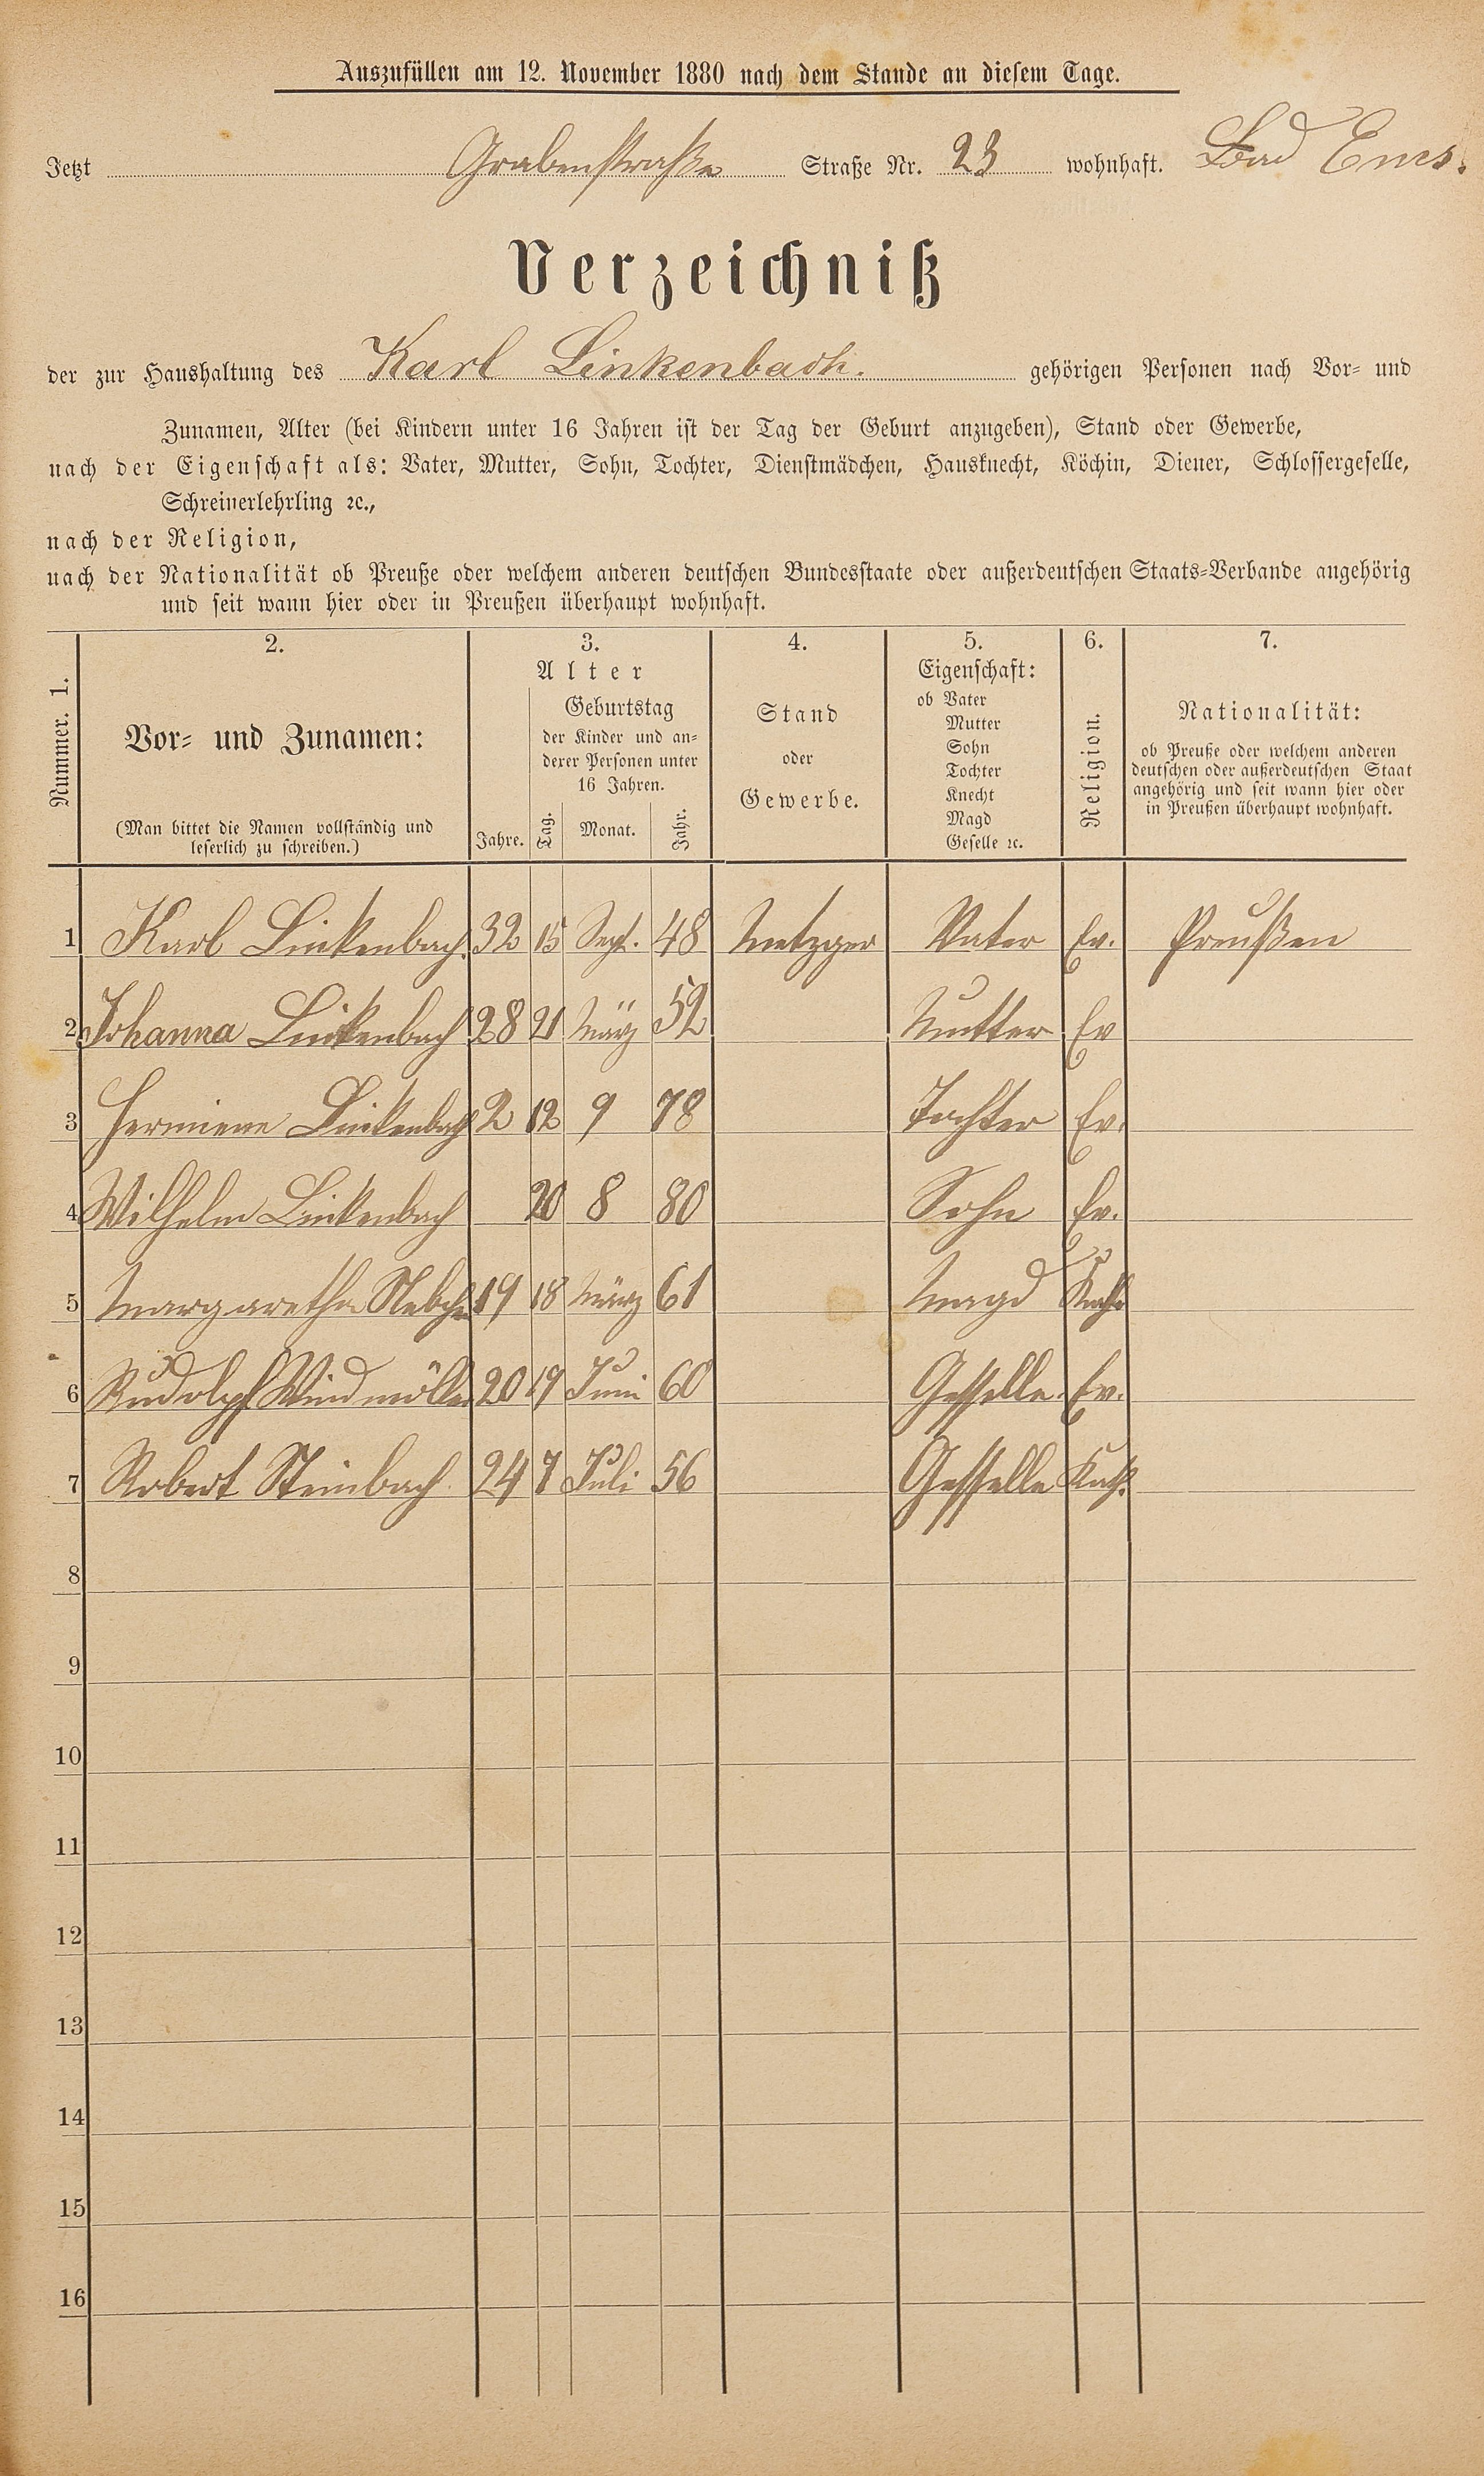 Auszufüllen am 12. November 1880 nach dem Stande an diesem Tage.
Jetzt Grabenstraße Straße Nr. 23 wohnhaft. Bad Ems.
Verzeichniß
der zur Haushaltung des Karl Linkenbach. gehörigen Personen nach Vor- und
Zunamen, Alter (bei Kindern unter 16 Jahren ist der Tag der Geburt anzugeben), Stand oder Gewerbe,
nach der Eigenschaft als: Vater, Mutter, Sohn, Tochter, Dienstmädchen, Hausknecht, Köchin, Diener, Schlossergeselle,
Schreinerlehrling ꝛc.,
nach der Religion,
nach der Nationalität ob Preuße oder welchem anderen deutschen Bundesstaate oder außerdeutschen Staats-Verbande angehörig
und seit wann hier oder in Preußen überhaupt wohnhaft.
Nummer. 1.
2.
Vor- und Zunamen:
(Man bittet die Namen vollständig und
leserlich zu schreiben.)
3.
Alter
Geburtstag
der Kinder und an-
derer Personen unter
16 Jahren.
Jahre. Tag. Monat. Jahr.
4.
Stand
oder
Gewerbe.
5.
Eigenschaft:
ob Vater
Mutter
Sohn
Tochter
Knecht
Magd
Geselle ꝛc.
6.
Religion.
7.
Nationalität:
ob Preuße oder welchem anderen
deutschen oder außerdeutschen Staat
angehörig und seit wann hier oder
in Preußen überhaupt wohnhaft.
1 Karl Linkenbach. 32 15 Sept. 48 Metzger Vater Ev. Preußen
2 Johanna Linkenbach 28 21 März 52 Mutter Ev
3 Hermiene Linkenbach 2 12 9 78 Tochter Ev.
4 Wilhelm Linkenbach 20 8 80 Sohn Ev.
5 Margaretha 19 18 März 61 Magd Kath
6 Rudolph Windmöller 20 19 Juni 60 Gesselle Ev.
7 Robert Steinbach 24 7 Juli 56 Gesselle Kath.
8
9
10
11
12
13
14
15
16